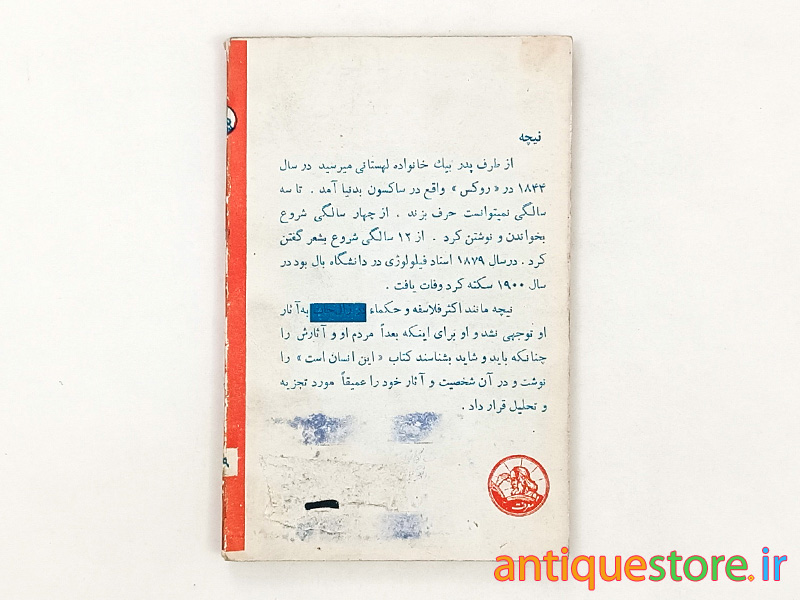 نیچه
از طرف پدر بیك خانواده لهستانی میرسید در سال
۱۸۴۴ در «روکس» واقع در ساکسون بدنیا آمد . تا سه
سالگی نمیتوانست حرف بزند . از چهار سالگی شروع
بخواندن و نوشتن کرد . از ۱۲ سالگی شروع بشعر گفتن
کرد . درسال ۱۸۷۹ استاد فیلولوژی در دانشگاه بال بود در
سال ۱۹۰۰ سکته کرد وفات یافت .
نیچه مانند اکثر فلاسفه و حکماء به آثار
او توجهی نشد و او برای اینکه بعداً مردم او و آثارش را
چنانکه باید و شاید بشناسند کتاب «این انسان است» را
نوشت و در آن شخصیت و آثار خود را عمیقاً مورد تجزیه
و تحلیل قرار داد .
antiquestore.ir